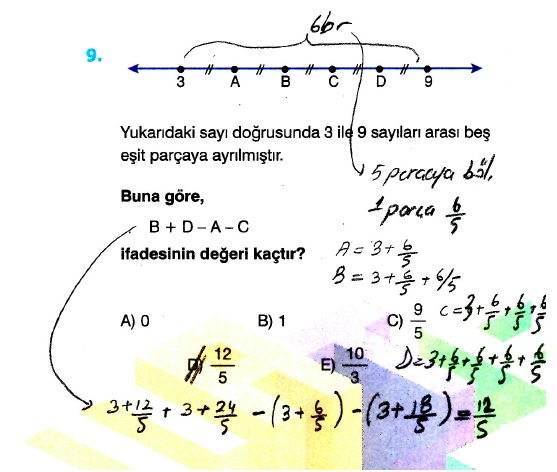 6br
9.
3 A B C D 9
Yukarıdaki sayı doğrusunda 3 ile 9 sayıları arası beş
eşit parçaya ayrılmıştır.
5 parçaya böl.
1 parça 6/5
Buna göre,
B + D – A – C
ifadesinin değeri kaçtır?
A = 3 + 6/5
B = 3 + 6/5 + 6/5
C = 3 + 6/5 + 6/5 + 6/5
A) 0 B) 1 C) 9/5
D) 12/5 E) 10/3
D = 3 + 6/5 + 6/5 + 6/5 + 6/5
3 + 12/5 + 3 + 24/5 - (3 + 6/5) - (3 + 18/5) = 12/5